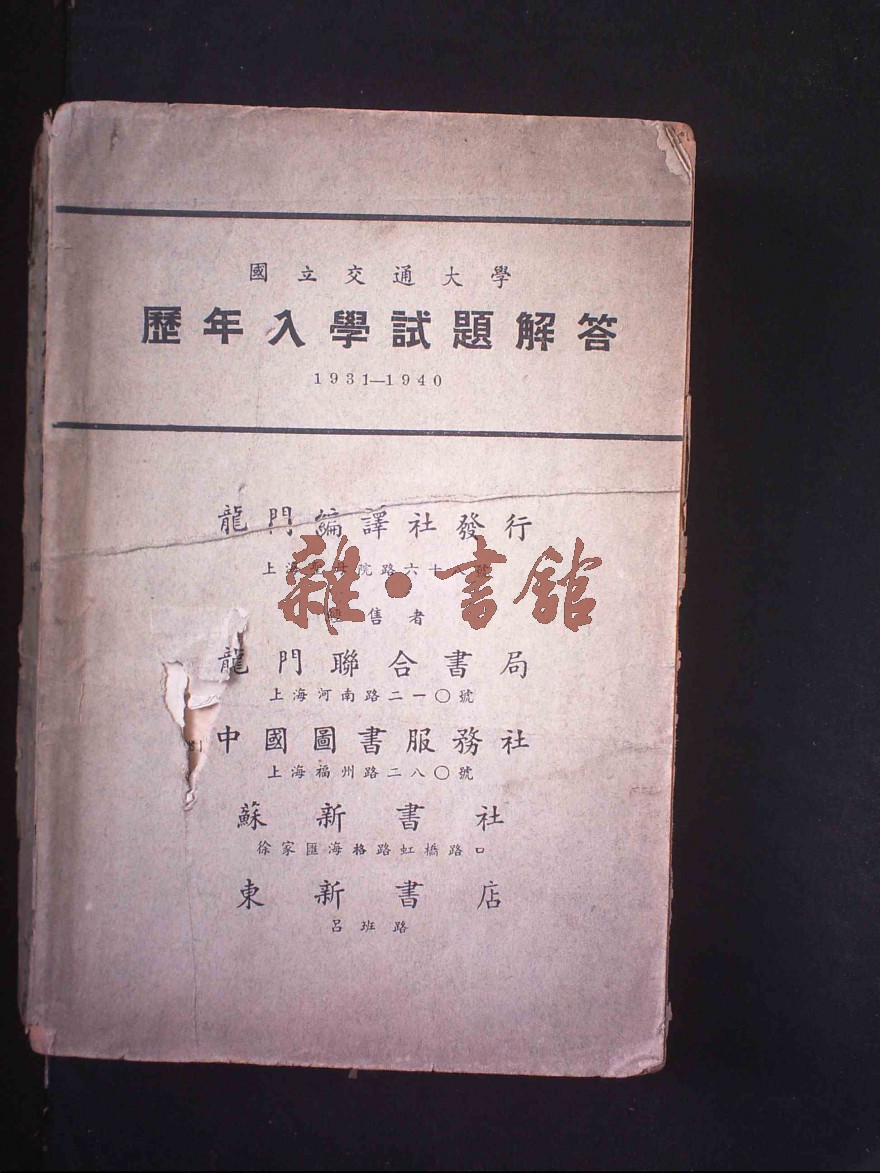 國立交通大學
歷年入學試題解答
1931—1940
龍門編譯社發行
上海 院路六十 號
售者
龍門聯合書局
上海河南路二一〇號
中國圖書服務社
上海福州路二八〇號
蘇新書社
徐家匯海格路虹橋路口
東新書店
呂班路
雜·書館